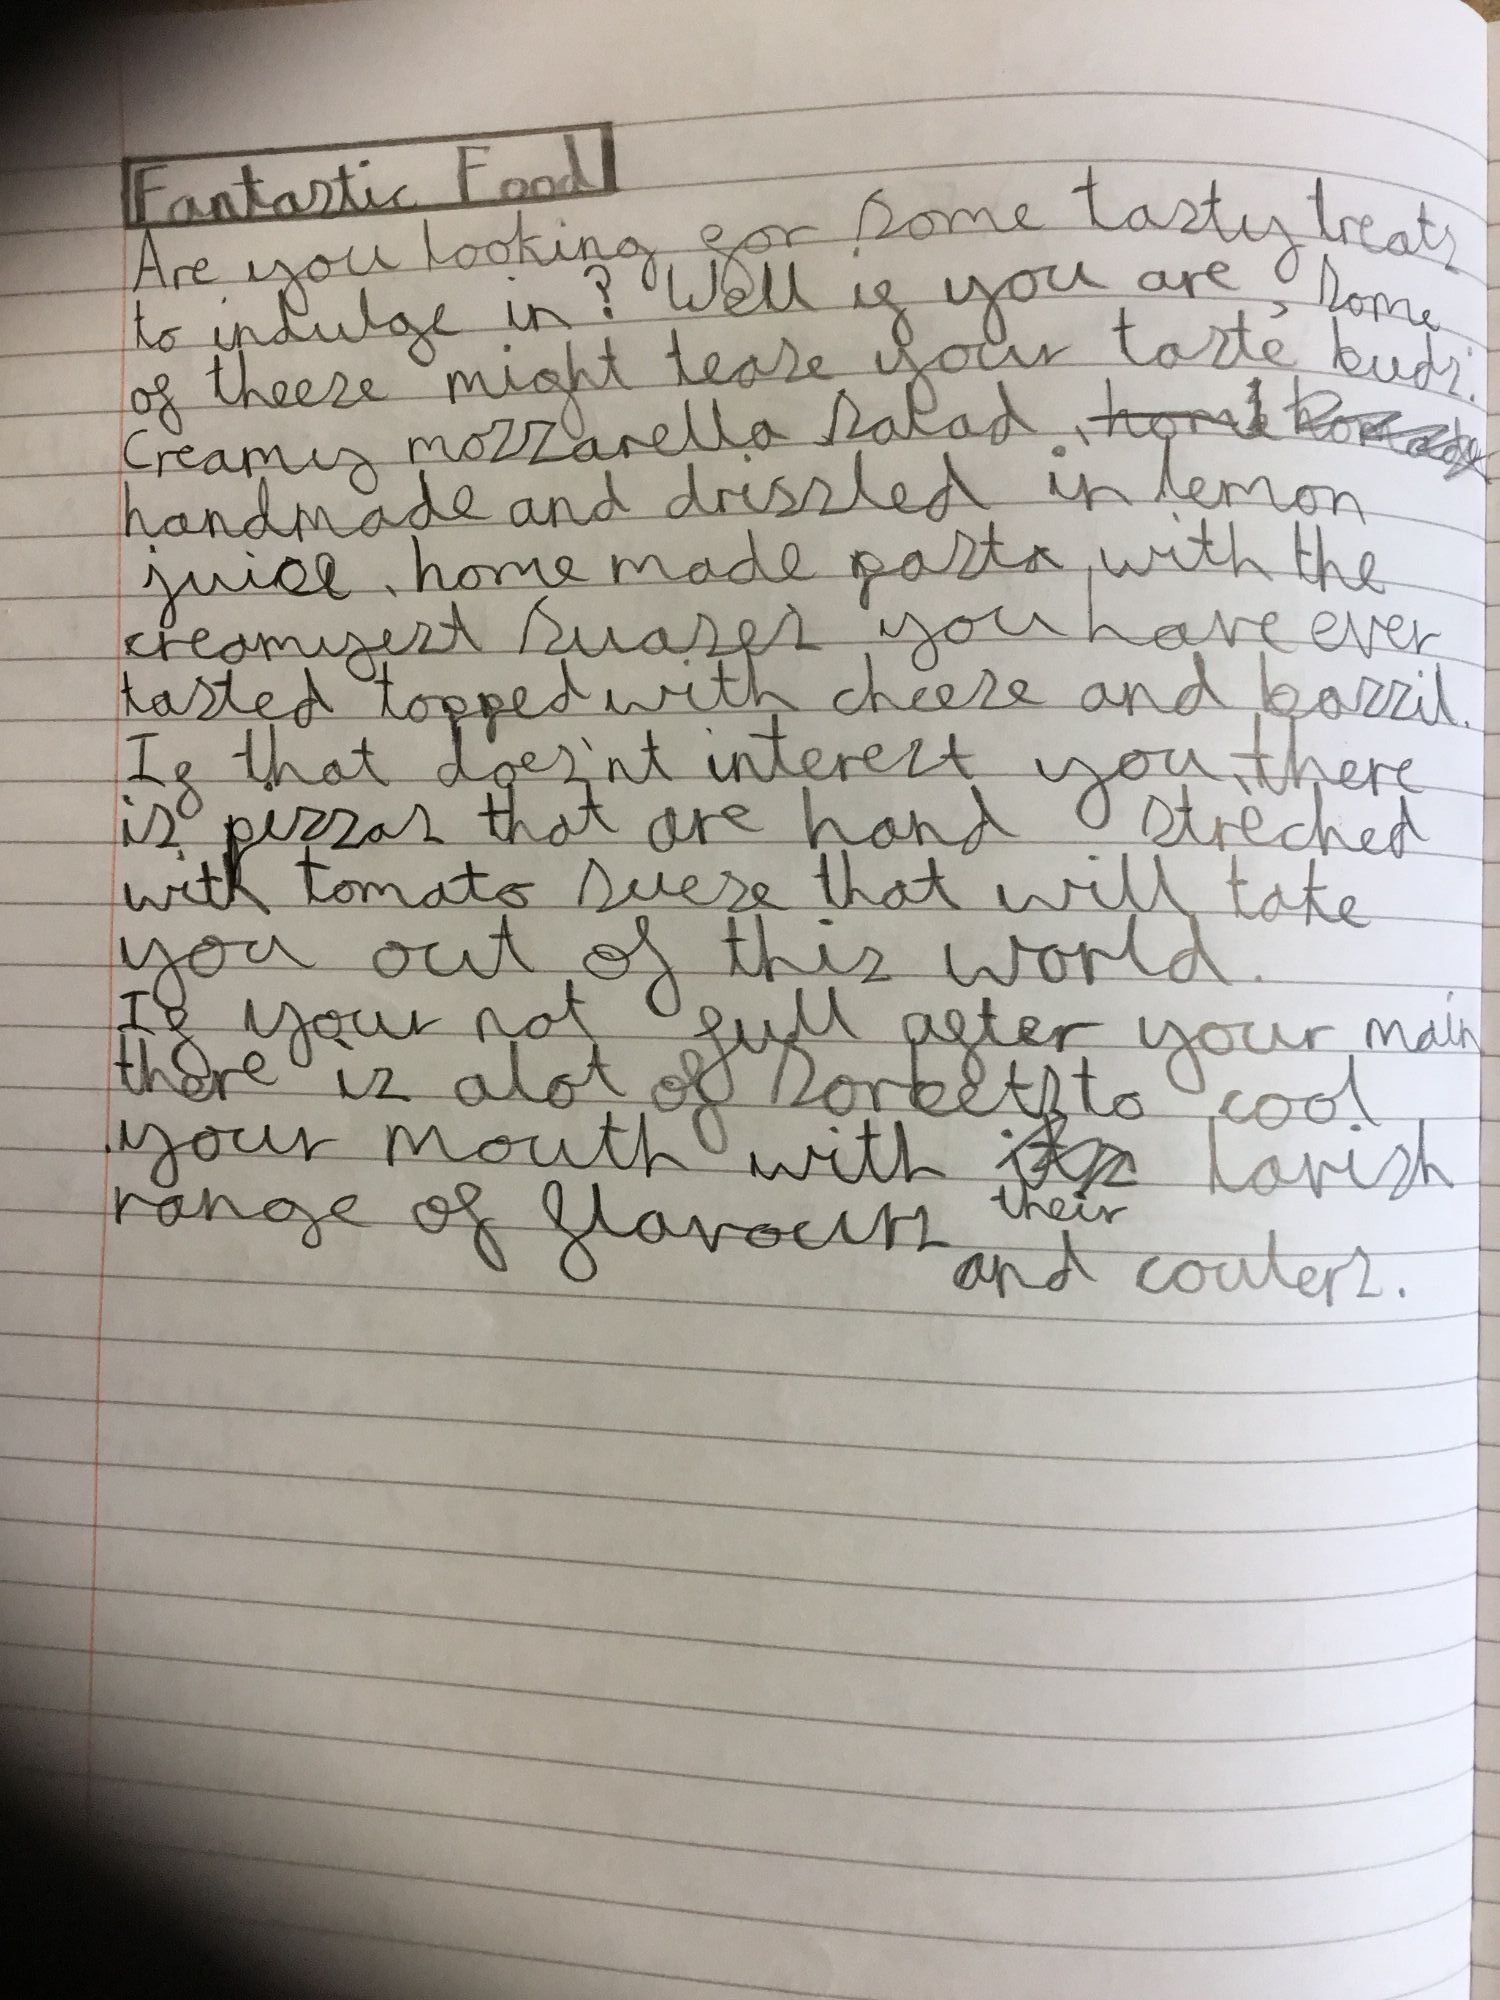 Fantastic Food
Are you looking for some tasty treats
to indulge in? Well if you are, some
of theese might tease your taste buds.
Creamy mozzarella salad, home
handmade and driszled in lemon
juice, home made pasta, with the
creamyest suases you have ever
tasted topped with cheese and bazzil.
If that does'nt interest you, there
is pizzas that are hand streched
with tomato suese that will take
you out of this world.
If your not full after your main
there is alot of sorbets to cool
your mouth with their lavish
range of flavours
and coulers.